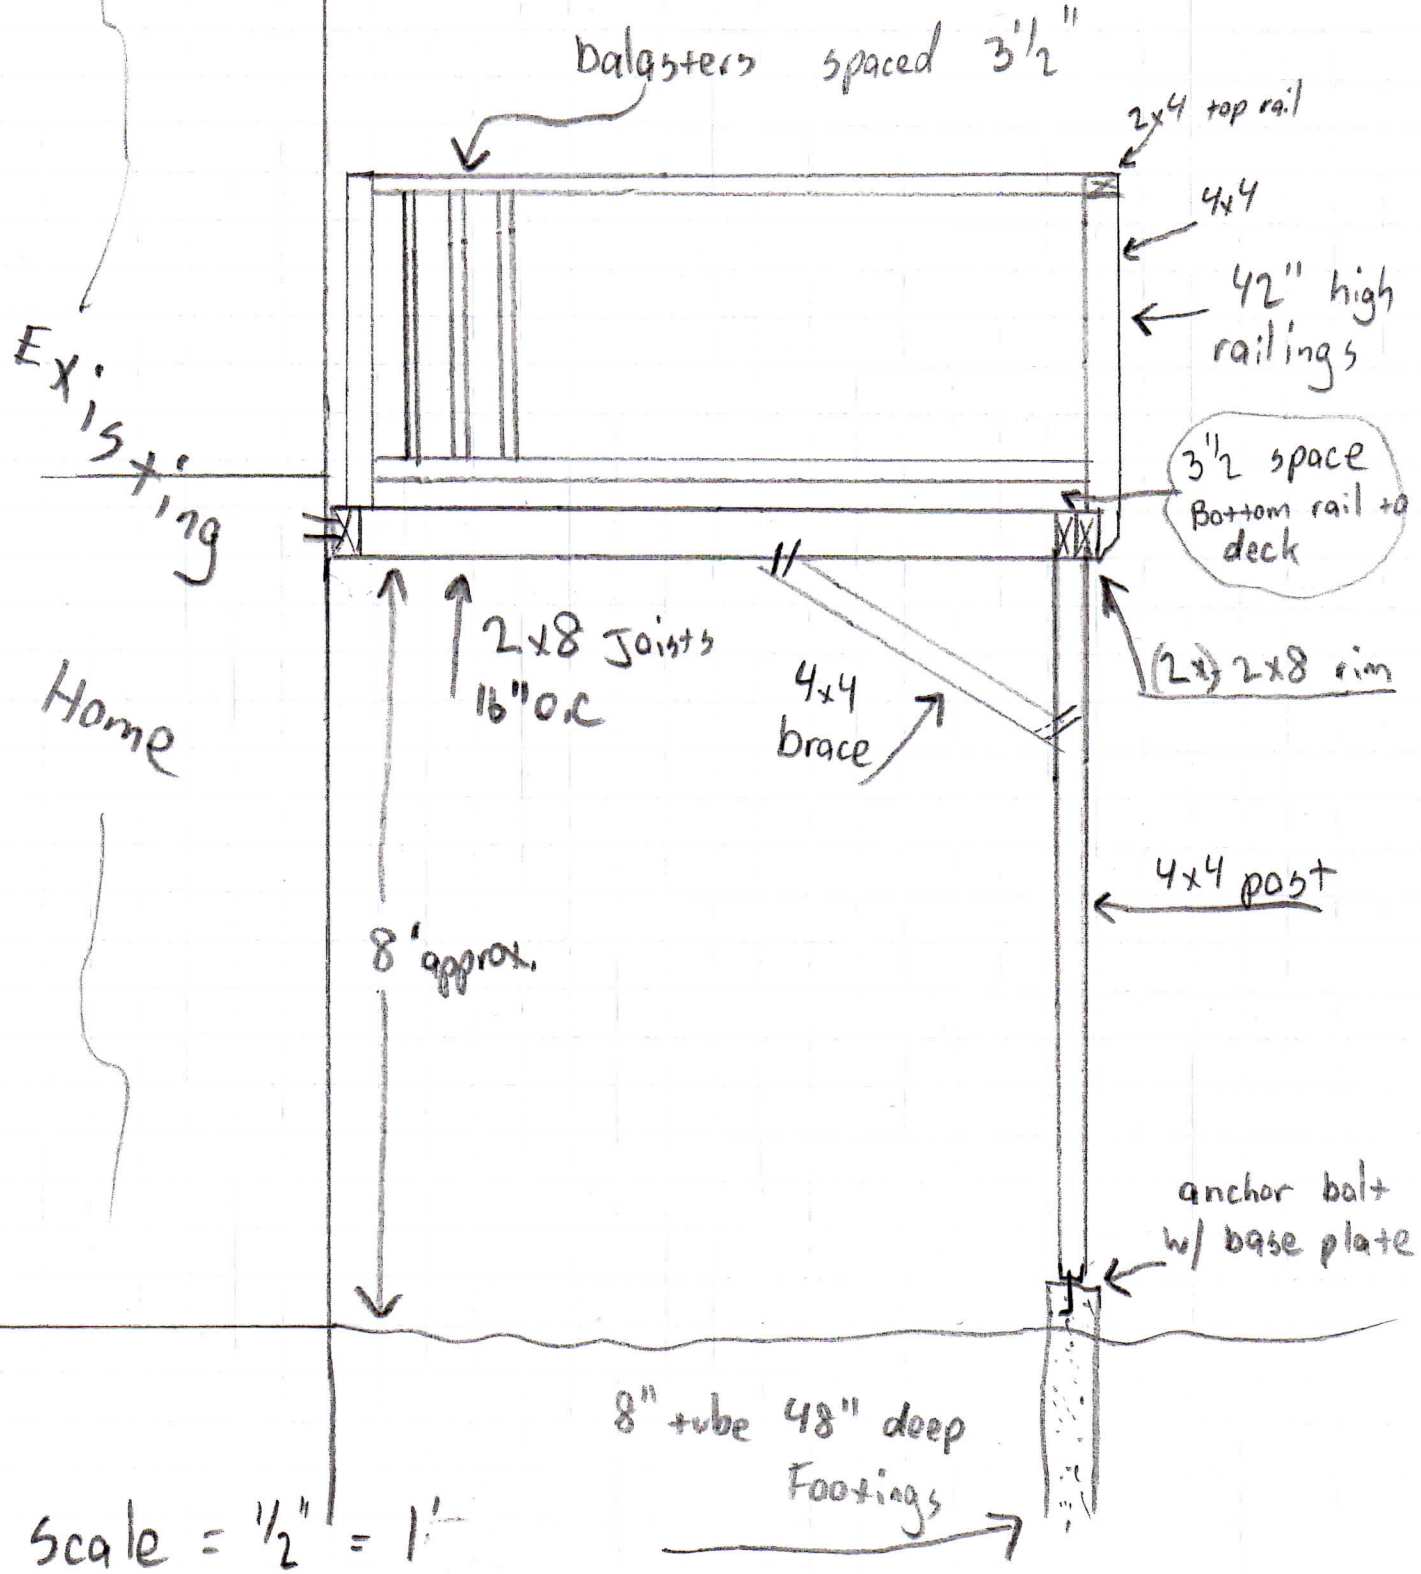 balasters spaced 3 1/2"
2x4 top rail
4x4
42" high
railings
Existing
Home
3 1/2 space
Bottom rail to
deck
2x8 Joists
16" O.C
4x4
brace
(2x) 2x8 rim
4x4 post
8' approx.
anchor bolt
w/ base plate
8" tube 48" deep
Footings
Scale = 1/2" = 1'